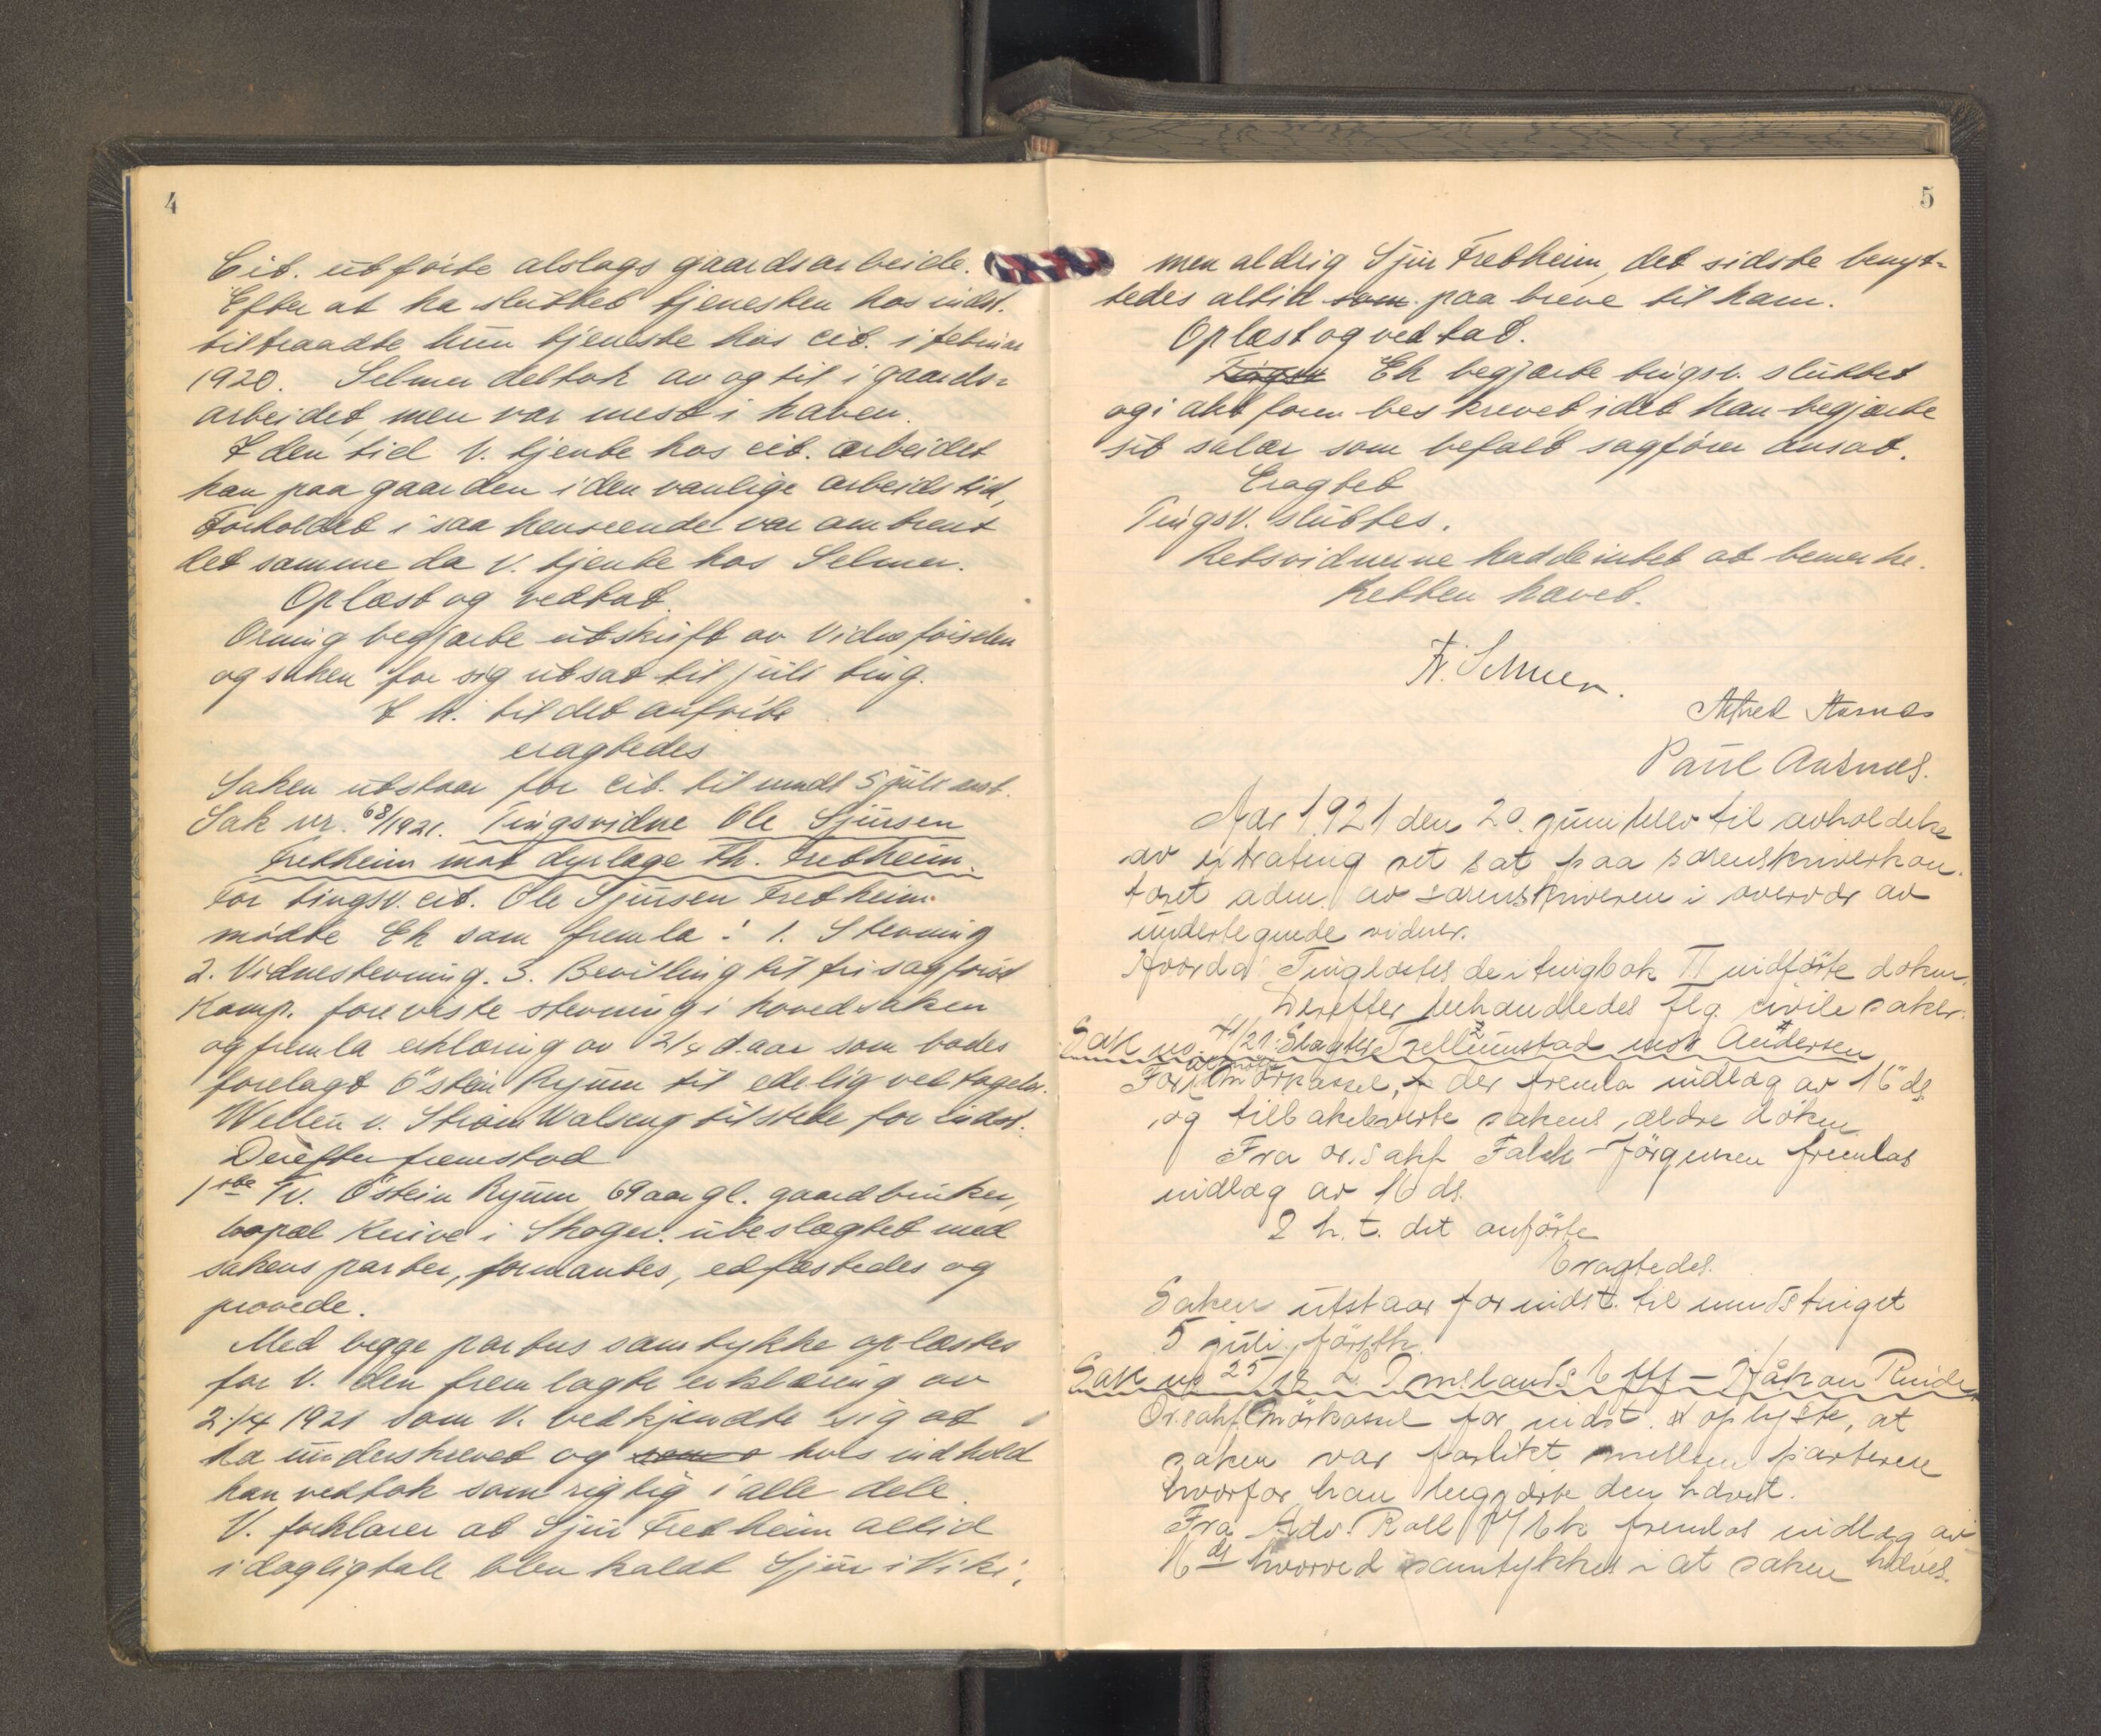 4
Cit. utførte alslags gaardsarbeide.
Efter at ha sluttet tjenesten hos indst.
tiltraadte hun tjeneste hos cit. i februar
1920. Selmer deltok av og til i gaards-
arbeidet, men var mest i haven.
I den tid V. tjente hos cit. arbeidet
han paa gaarden i den vanlige arbeidstid,
Forholdet i saa henseende var omtrent
det samme da V. tjente hos Selmer.
Oplæst og vedtat.
Orning begjærte utskrift av vidneførselen
og saken for sig utsat til juli ting.
I h. til det anførte
eragtedes
Saken utstaar for cit. til mndt 5 juli næst.
Sak nr. 68/1921. Tingsvidne Ole Sjursen
Fretheim mot dyrlæge Th. Fretheim.
For tingsv. cit. Ole Sjursen Fretheim
mødte Ek som fremla: 1. Stevning
2. Vidnestevning. 3. Bevilling til fri sagførsel
Komp. foreviste stevning i hovedsaken
og fremla erklæring av 2/4 d. aar som bades
forelagt Østein Ryum til edelig vedtagelse.
Wellen v. Strøm Walseng tilstede for indst.
Derefter fremstod
1ste Tv. Østein Ryum 69 aar gl. gaardbruker,
bopæl Knive i Skoger, ubeslægtet med
sakens parter, formantes, edfæstedes og
provede.
Med begge parters samtykke oplæstes
for V. den fremlagte erklæring av
2/4 1921 som V. vedkjendte sig at
ha underskrevet og som hvis indhold
han vedtok som rigtig i alle dele.
V. forklarer at Sjur Fretheim altid
i dagligtale blev kaldt Sjur i Viki,
5
men aldrig Sjur Fretheim, det sidste benyt-
tedes altid som paa breve til ham.
Oplæst og vedtat.
Tingsv Ek begjærte tingsv. sluttet
og i akt form beskrevet idet han begjærte
sit salær som befalt sagfører ansat.
Eragtet
Tingsv. sluttes.
Retsvidnerne hadde intet at bemerke.
Retten hævet.
Fr. Selmer.
Alfred Aasnæs
Paul Aasnæs.
Aar 1921 den 20. juni blev til avholdelse
av extrating ret sat paa sorenskriverkon.
toret adm. av sorenskriveren i overvær av
undertegnede vidner.
Hvorda Tinglæstes de i tingbok II indførte dokum.
Derefter behandledes flg. civile saker.
Sak no. 41/21. Slagter Trellumstad mot Andersen
For Mørkassel, der fremla indlæg av 16 ds.
og tilbakeleverte sakens ældre dokum.
Fra or. sakf Falck-Jørgensen fremlas
indlæg av 16 ds.
I h. t. det anførte
Eragtedes.
Saken utstaar for indst. til mndstinget
5 juli førstk.
Sak no 25/18 L Omslands Eftf - Håkan Ruide
Or. sakf. Mørkassel for indst. oplyste, at
saken var forlikt mellem parterene
hvorfor han begjærte den hævet.
Fra Adv. Roll v/ Ek fremlas indlæg av
16 ds hvorved samtykkes i at saken hæves.